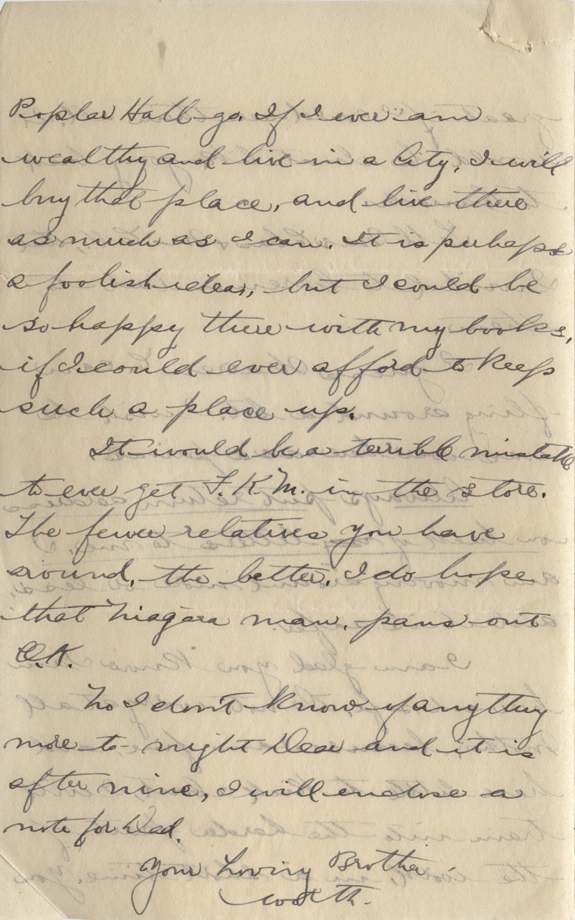 Poplar Hall go. If I ever am
wealthy and live in a City, I will
buy that place, and live there
as much as I can. It is perhaps
a foolish idea, but I could be
so happy there with my books,
if I could ever afford to keep
such a place up.
It would be a terrible mistake
to ever get F. K. M. in the store.
The fewer relatives you have
around, the better. I do hope
that Niagara man, pans out
O.K.
No I don't know of anything
more to-night Dear and it is
after nine, I will enclose a
note for Dad.
Your Loving Brother,
Worth.